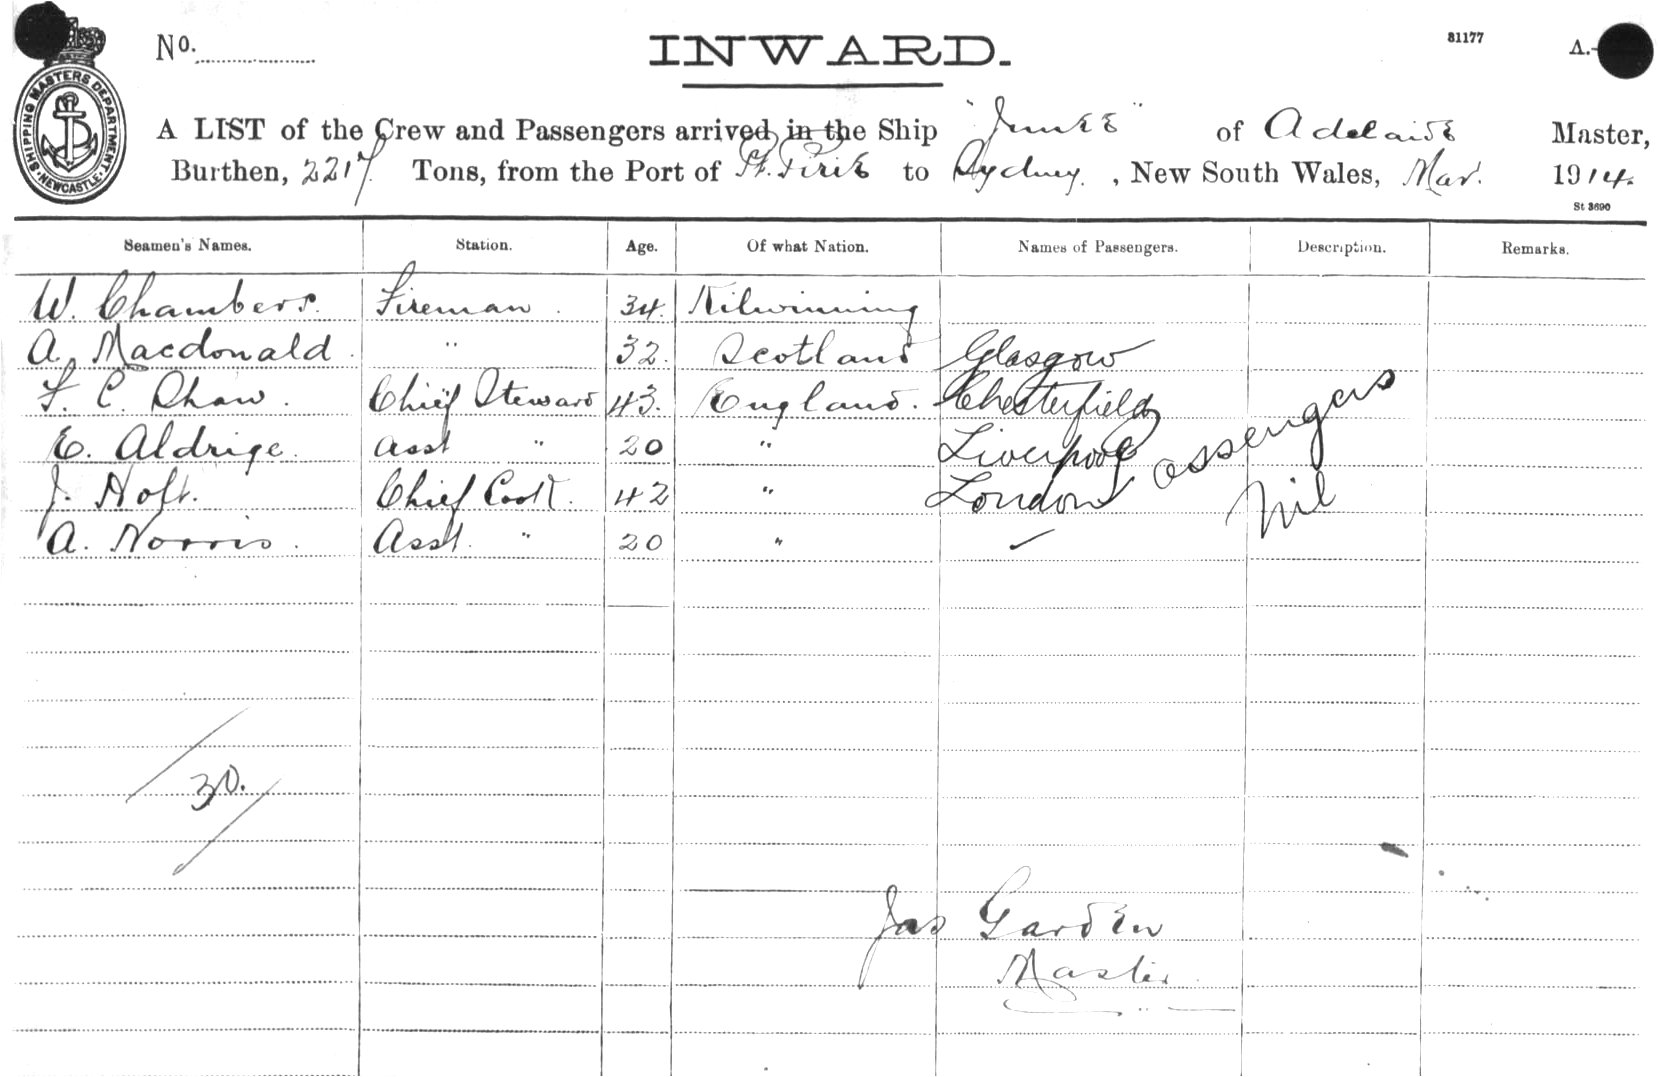 No. INWARD. 81177 A.-
SHIPPING MASTERS DEPARTMENT. NEWCASTLE.
A LIST of the Crew and Passengers arrived in the Ship "Junee" of Adelaide Master,
Burthen, 2217 Tons, from the Port of Pt. Pirie to Sydney. , New South Wales, Mar. 1914.
St 3690
Seamen's Names. Station. Age. Of what Nation. Names of Passengers. Description. Remarks.
W. Chambers. Fireman. 34. Kilwinning
A. Macdonald. " 32. Scotland Glasgow
F. C. Shaw. Chief Steward 43. England. Chesterfield
E. Aldrige. Asst " 20 " Liverpool
J. Holt. Chief Cook. 42 " London
A. Norris. Asst. " 20 "
Passengers
Nil
30.
Jas Garden
Master